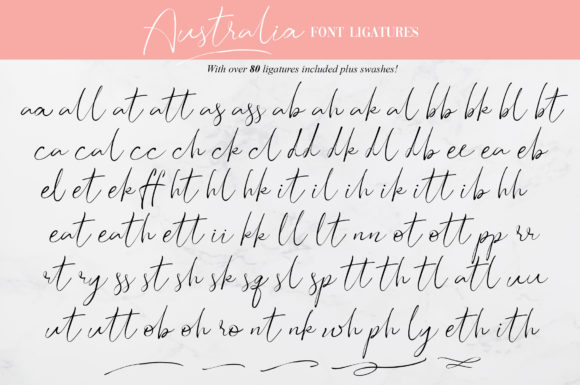 Australia FONT LIGATURES
With over 80 ligatures included plus swashes!
ax all at att as ass ab ah ak al bb bk bl bt
ca cal cc ch ck cl dd dk dl db ee ea eb
el et ek ff ht hl hk it il ih ik itt ib hh
eat eath ett ii kk ll lt nn ot ott pp rr
rt ry ss st sh sk sq sl sp tt th tl atl uu
ut utt ob oh ro nt nk wh ph ly eth ith